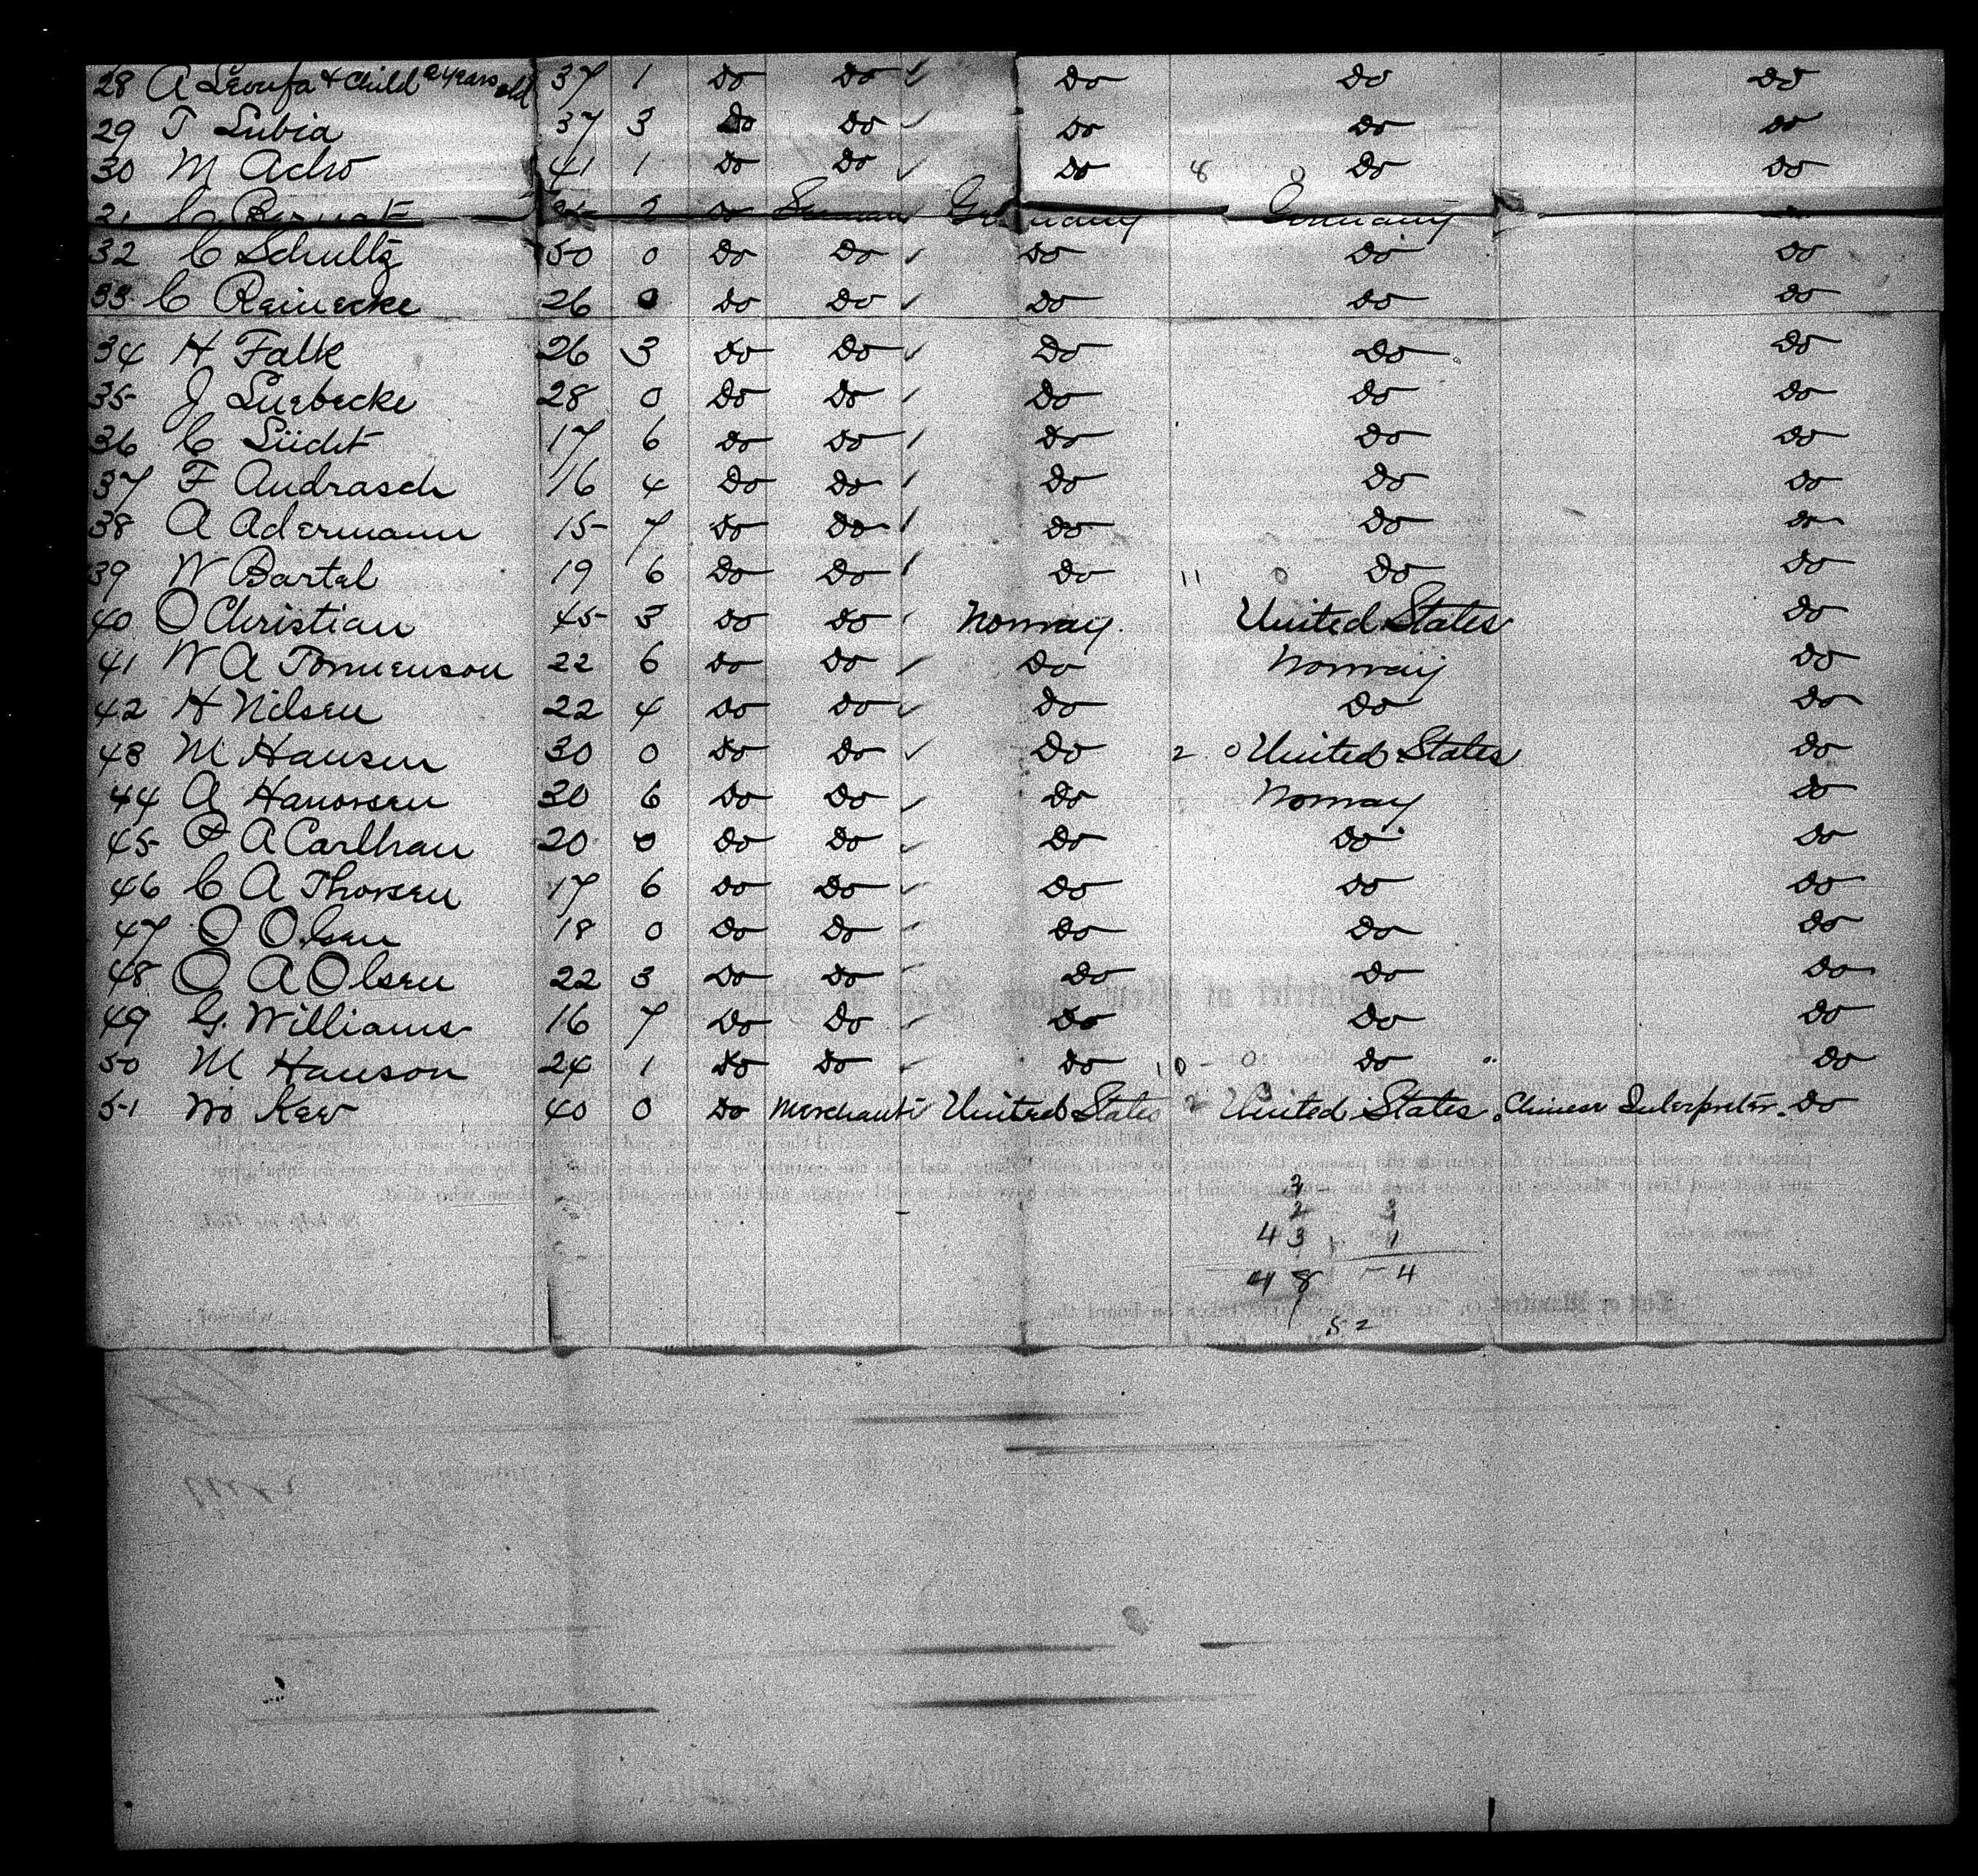 28 A Leoufa & Child 2 years old 37 1 Do Do Do Do Do
29 T Lubia 37 3 Do Do Do Do Do
30 M Acho 41 1 Do Do Do 8 0 Do Do
31 C Bernat 2 Do Seaman Germany Germany
32 C Schultz 50 0 Do Do Do Do Do
33 C Reinecke 26 0 Do Do Do Do Do
34 H Falk 26 3 Do Do Do Do Do
35 J Luebecke 28 0 Do Do Do Do Do
36 C Lücht 17 6 Do Do Do Do Do
37 F Audrasch 16 4 Do Do Do Do Do
38 A Adermann 15 7 Do Do Do Do Do
39 W Bartel 19 6 Do Do Do 11 0 Do Do
40 O Christian 45 3 Do Do Norway United States Do
41 W A Tommenson 22 6 Do Do Do Norway Do
42 H Nilsen 22 4 Do Do Do Do Do
43 M Hansen 30 0 Do Do Do 2 0 United States Do
44 A Hanorsen 30 6 Do Do Do Norway Do
45 A Carlhan 20 0 Do Do Do Do Do
46 C A Thorsen 17 6 Do Do Do Do Do
47 O Olsen 18 0 Do Do Do Do Do
48 O A Olsen 22 3 Do Do Do Do Do
49 G. Williams 16 7 Do Do Do Do Do
50 M Hanson 24 1 Do Do Do 10 - 0 Do Do
51 Wo Kew 40 0 Do Merchant United States 2 United States Chinese Interpreter Do
3
2 3
43 1
48 - 4
52